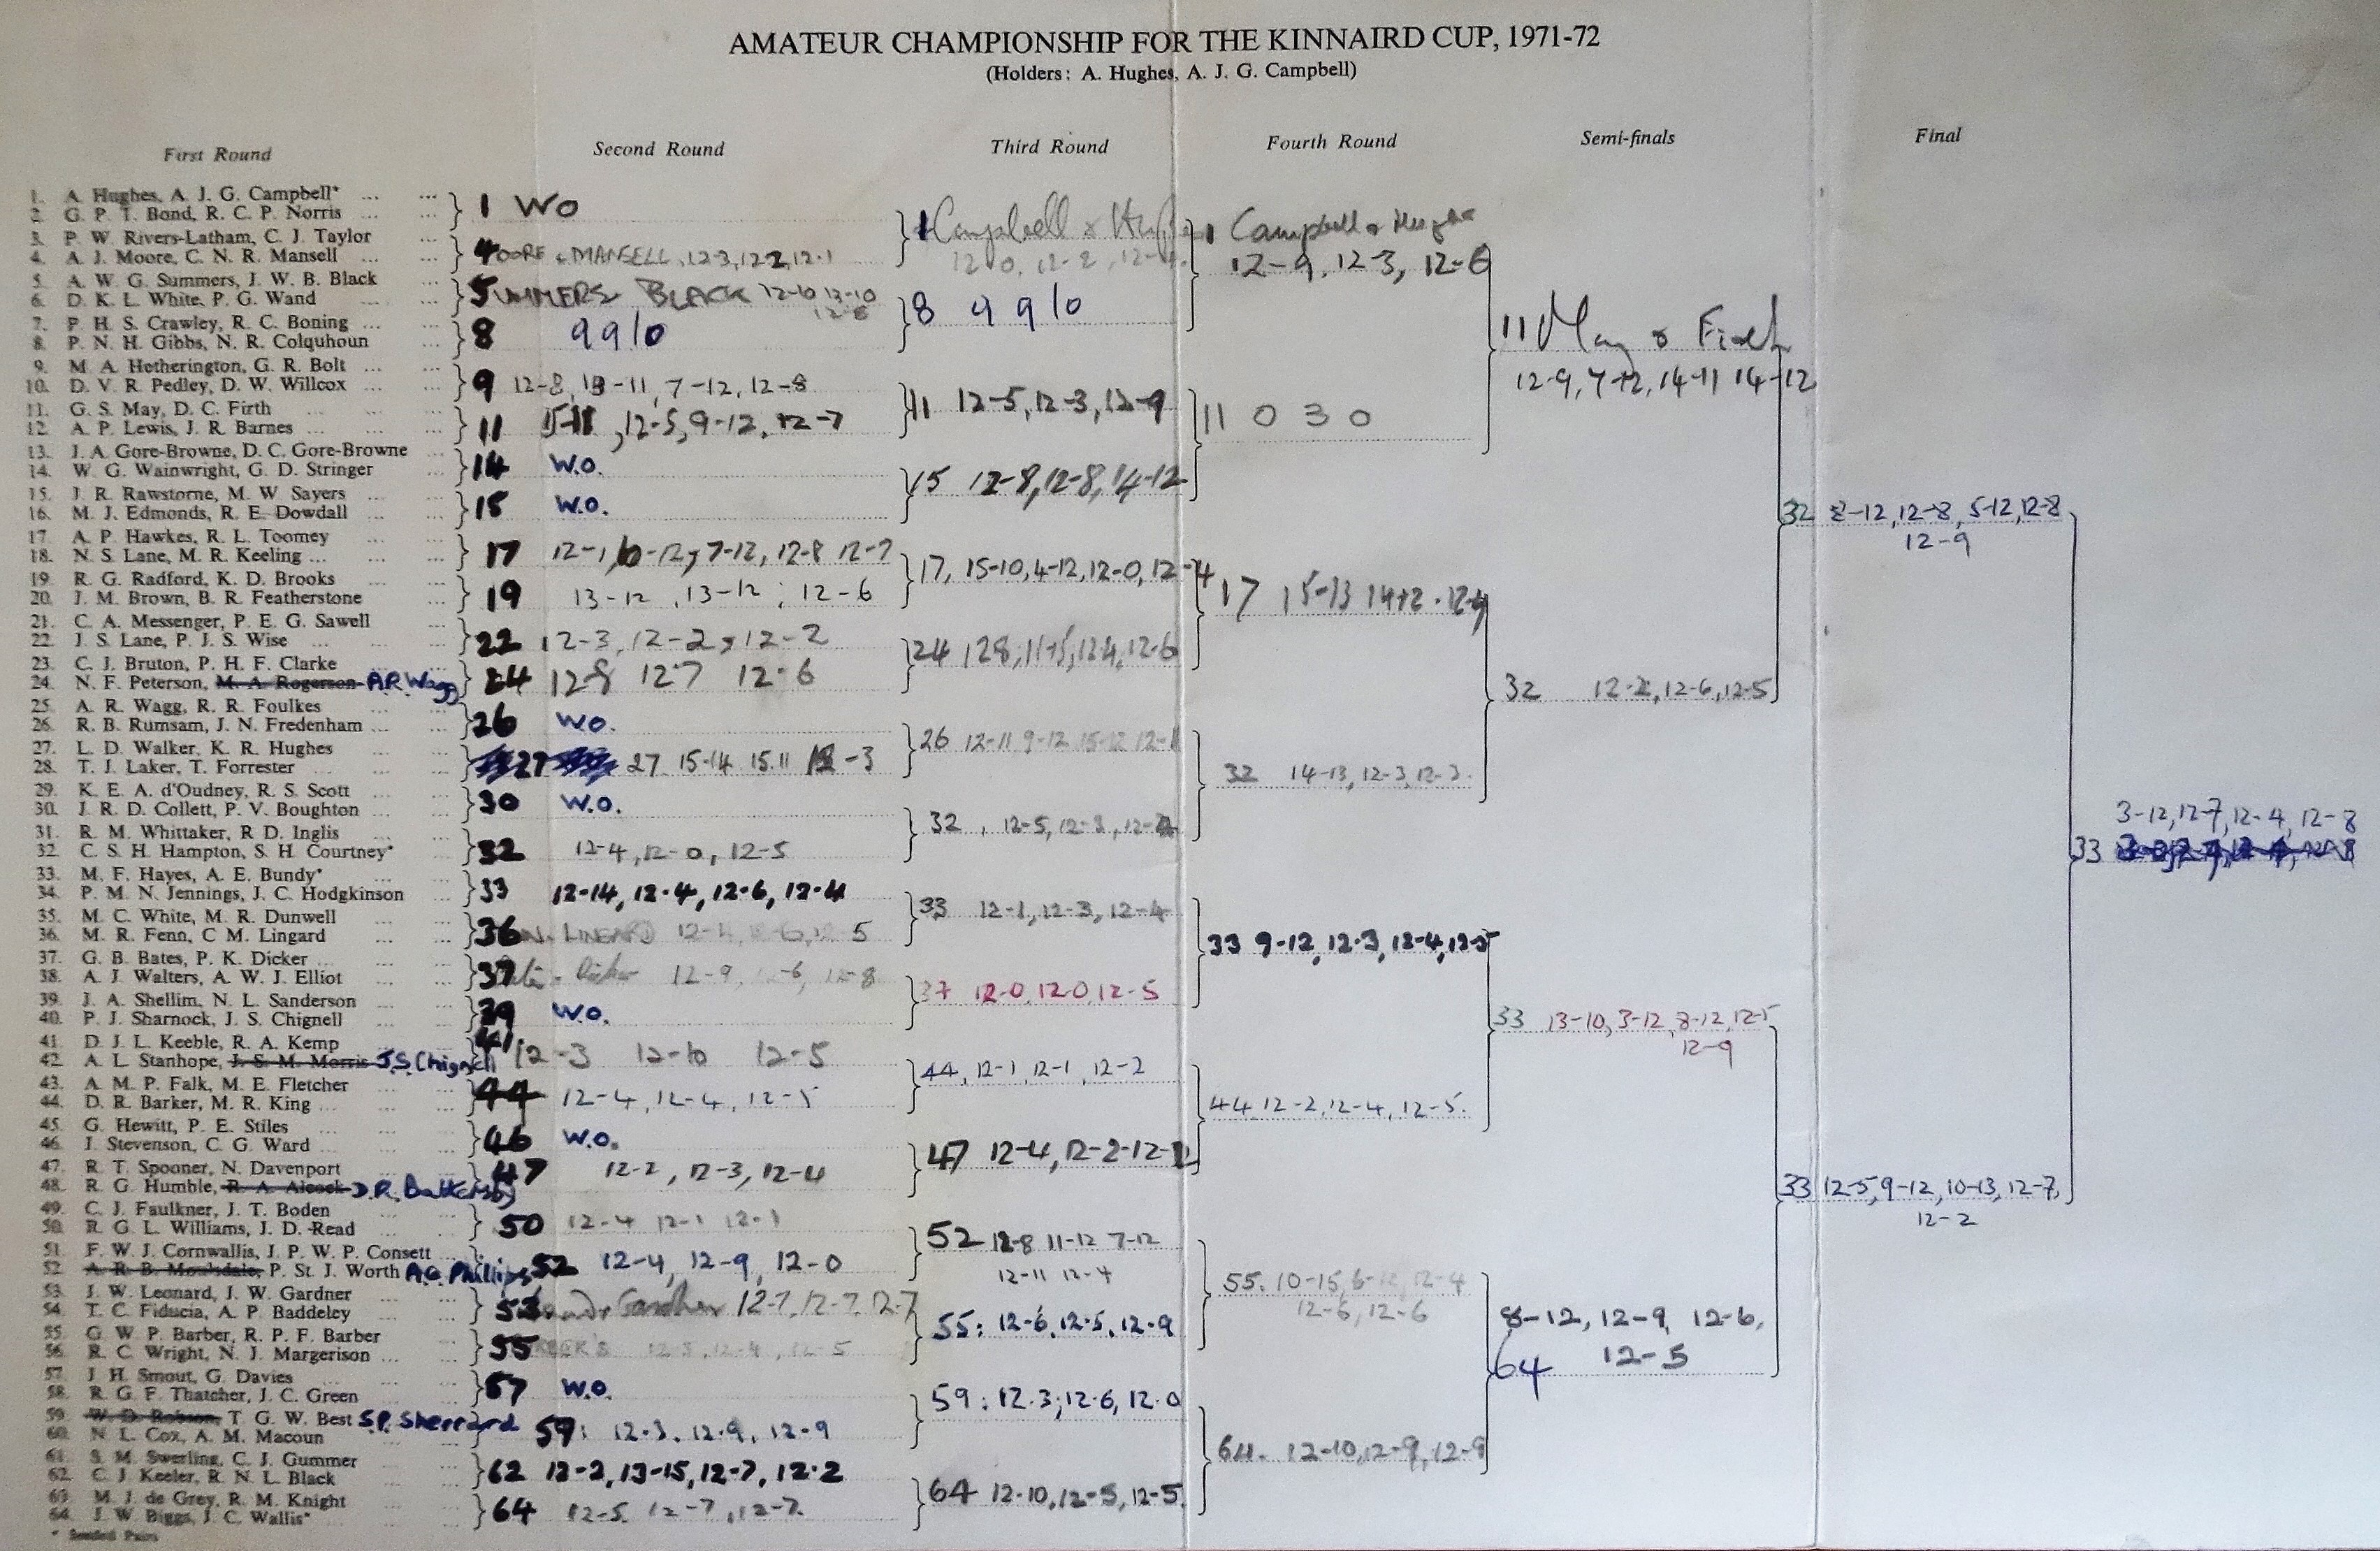 AMATEUR CHAMPIONSHIP FOR THE KINNAIRD CUP, 1971-72
(Holders: A. Hughes, A. J. G. Campbell)
First Round
1. A. Hughes, A. J. G. Campbell*
2. G. P. T. Bond, R. C. P. Norris
3. P. W. Rivers-Latham, C. J. Taylor
4. A. J. Moore, C. N. R. Mansell
5. A. W. G. Summers, J. W. B. Black
6. D. K. L. White, P. G. Wand
7. P. H. S. Crawley, R. C. Boning
8. P. N. H. Gibbs, N. R. Colquhoun
9. M. A. Hetherington, G. R. Bolt
10. D. V. R. Pedley, D. W. Willcox
11. G. S. May, D. C. Firth
12. A. P. Lewis, J. R. Barnes
13. J. A. Gore-Browne, D. C. Gore-Browne
14. W. G. Wainwright, G. D. Stringer
15. J. R. Rawstorne, M. W. Sayers
16. M. J. Edmonds, R. E. Dowdall
17. A. P. Hawkes, R. L. Toomey
18. N. S. Lane, M. R. Keeling
19. R. G. Radford, K. D. Brooks
20. J. M. Brown, B. R. Featherstone
21. C. A. Messenger, P. E. G. Sawell
22. J. S. Lane, P. J. S. Wise
23. C. J. Bruton, P. H. F. Clarke
24. N. F. Peterson, M. A. Rogerson A.R. Wagg
25. A. R. Wagg, R. R. Foulkes
26. R. B. Rumsam, J. N. Fredenham
27. L. D. Walker, K. R. Hughes
28. T. J. Laker, T. Forrester
29. K. E. A. d'Oudney, R. S. Scott
30. J. R. D. Collett, P. V. Boughton
31. R. M. Whittaker, R D. Inglis
32. C. S. H. Hampton, S. H. Courtney*
33. M. F. Hayes, A. E. Bundy*
34. P. M. N. Jennings, J. C. Hodgkinson
35. M. C. White, M. R. Dunwell
36. M. R. Fenn, C M. Lingard
37. G. B. Bates, P. K. Dicker
38. A. J. Walters, A. W. J. Elliot
39. J. A. Shellim, N. L. Sanderson
40. P. J. Sharnock, J. S. Chignell
41. D. J. L. Keeble, R. A. Kemp
42. A. L. Stanhope, J. S. M. Morris J.S. Chignell
43. A. M. P. Falk, M. E. Fletcher
44. D. R. Barker, M. R. King
45. G. Hewitt, P. E. Stiles
46. J. Stevenson, C. G. Ward
47. R. T. Spooner, N. Davenport
48. R. G. Humble, R. A. Alcock D.R. Battersby
49. C. J. Faulkner, J. T. Boden
50. R. G. L. Williams, J. D. Read
51. F. W. J. Cornwallis, J. P. W. P. Consett
52. P. St. J. Worth A.G. Phillips
53. J. W. Leonard, J. W. Gardner
54. T. C. Fiducia, A. P. Baddeley
55. G. W. P. Barber, R. P. F. Barber
56. R. C. Wright, N. J. Margerison
57. J. H. Smout, G. Davies
58. R. G. F. Thatcher, J. C. Green
59. W. D. Robson, T. G. W. Best S.P. Sherrard
60. N. L. Cox, A. M. Macoun
61. S. M. Swerling, C. J. Gummer
62. C. J. Keeler, R. N. L. Black
63. M. J. de Grey, R. M. Knight
64. J. W. Biggs, J. C. Wallis*
* Seeded Pairs
Second Round
1 WO
4 MOORE & MANSELL, 12-3, 12-2, 12-1
5 SUMMERS BLACK 12-10 13-10
8 9 9 10
9 12-8, 13-11, 7-12, 12-8
11 15-11, 12-5, 9-12, 12-7
14 W.O.
15 W.O.
17 12-1, 6-12, 7-12, 12-8 12-7
19 13-12, 13-12; 12-6
22 12-3, 12-2, 12-2
24 12-8 12-7 12-6
26 W.O.
27 27 15-14 15.11 12-3
30 W.O.
32 12-4, 12-0, 12-5
33 12-14, 12-4, 12-6, 12-4
36 LINGARD 5
37 Dicker 12-9, 12-8
39 W.O.
41 12-3 12-10 12-5
44 12-4, 12-4, 12-5
46 W.O.
47 12-2, 12-3, 12-4
50 12-4 12-1 12-1
52 12-4, 12-9, 12-0
53 Gardner 12-7, 12-7, 12-7
55 12-4, 12-5
57 W.O.
59: 12-3, 12-9, 12-9
62 12-2, 13-15, 12-7, 12-2
64 12-5, 12-7, 12-7
Third Round
1 Campbell & Hughes
12-0, 12-2,
8 9 9 10
11 12-5, 12-3, 12-9
15 12-8, 12-8, 14-12
17, 15-10, 4-12, 12-0, 12-4
24 12-8, 11-15, 12-4, 12-6
26 12-11 9-12 15-12
32, 12-5, 12-3,
33 12-1, 12-3, 12-4
37 12-0, 12-0, 12-5
44, 12-1, 12-1, 12-2
47 12-4, 12-2-12-2
52 12-8 11-12 7-12
12-11 12-4
55: 12-6, 12-5, 12-9
59: 12.3; 12-6, 12-0
64 12-10, 12-5, 12-5
Fourth Round
1 Campbell & Hughes
12-9, 12-3, 12-6
11 0 3 0
17 15-13 14-12 12-9
32 14-13, 12-3, 12-3.
33 9-12, 12-3, 12-4, 12-5
44 12-2, 12-4, 12-5.
55. 10-15, 6-12, 12-4
12-6, 12-6
64. 12-10, 12-9, 12-9
Semi-finals
11 May & Firth
12-9, 7-12, 14-11 14-12
32 12-2, 12-6, 12-5
33 13-10, 3-12, 8-12, 12-5
12-9
8-12, 12-9, 12-6,
64 12-5
Final
32 8-12, 12-8, 5-12, 12-8
12-9
33 12-5, 9-12, 10-13, 12-7,
12-2
3-12, 12-7, 12-4, 12-8
33